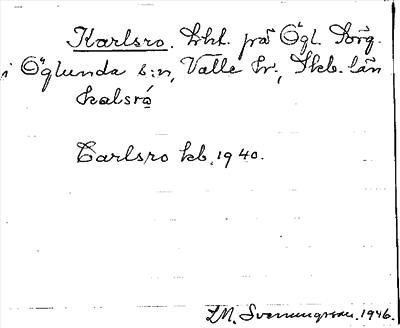 Karlsro. Lht. på Ögl. Torg.
i Öglunda s:n, Valle hr., Skb. län
kalsró
Carlsro kb. 1940.
L.M. Svenungsson. 1946.